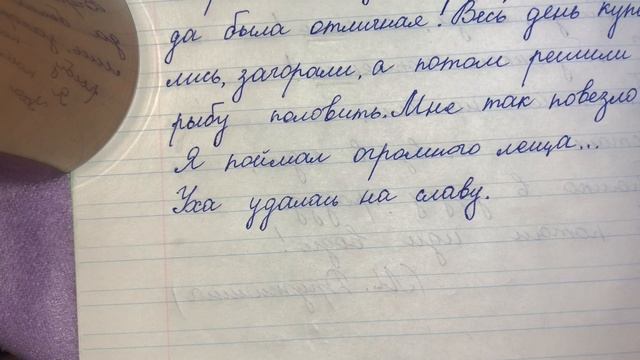 да была отличная! Весь день купа
лись, загорали, а потом решили
рыбу половить. Мне так повезло
Я поймал огромного леща...
Уха удалась на славу.